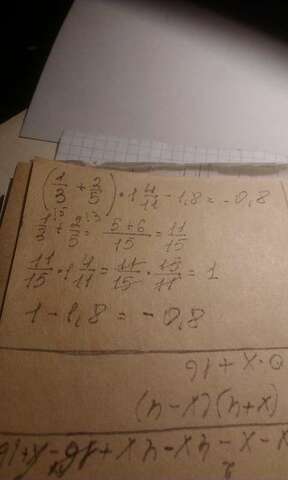 (1/3 + 2/5) · 1 4/11 - 1,8 = - 0,8
1/3 + 2/5 = 5+6/15 = 11/15
11/15 · 1 4/11 = 11/15 · 15/11 = 1
1 - 1,8 = - 0,8
0·x+16
(x+4)(x-4)